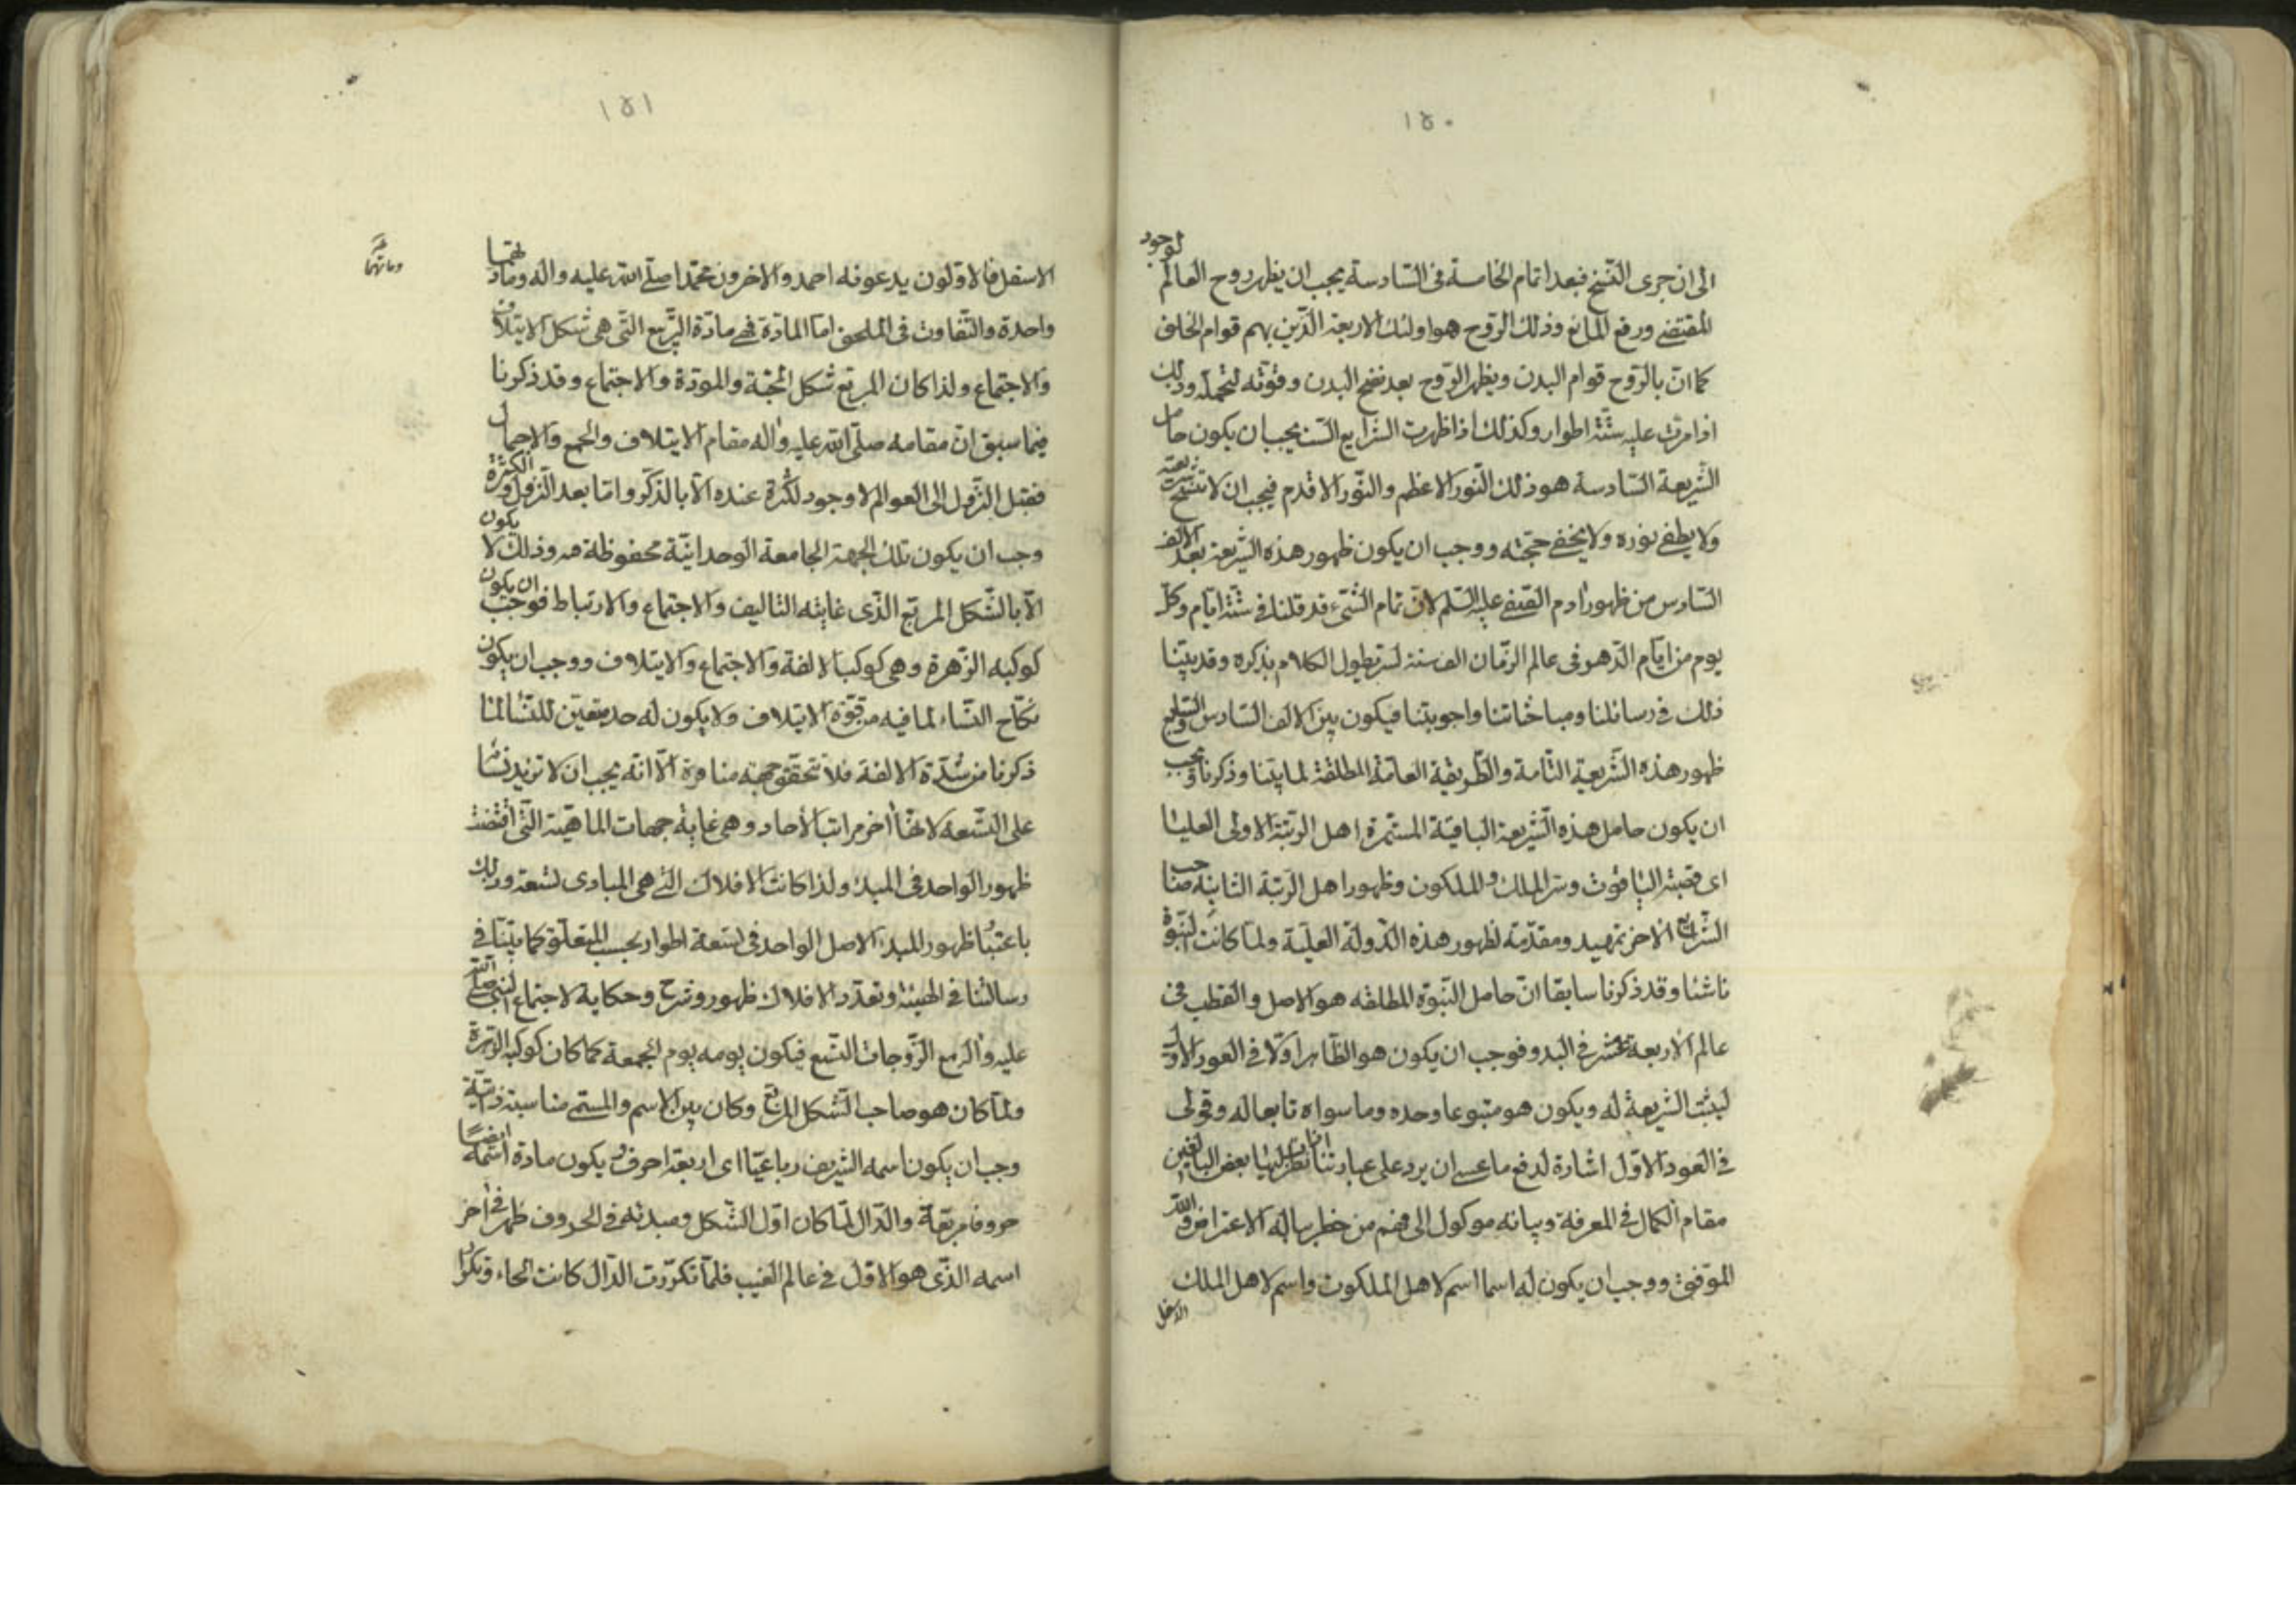 ١٥٠
الى ان جرى النسخ فبعد اتمام الخامسة فى السادسة يجب ان يظهر روح العالم لوجود
المقتضى ورفع المانع وذلك الروح هو اولئك الاربعة الذين بهم قوام الخلق
كما ان بالروح قوام البدن ويظهر الروح بعد نضج البدن وقوته لتحمله وذلك
اذا مرت عليه ستة اطوار وكذلك اذا ظهرت الشرايع الست يجب ان يكون حامل
الشريعة السادسة هو ذلك النور الاعظم والنور الاقدم فيجب ان لا تنسخ شريعته
ولا يطفى نوره ولا يخفى حجته ووجب ان يكون ظهور هذه الشريعة بعد الالف
السادس من ظهور ادم الصفى عليه السلم لان تمام الشىء قد قلنا فى ستة ايام وكل
يوم من ايام الدهر فى عالم الزمان الف سنة لسر يطول الكلام بذكره وقد بيّنا
ذلك فى رسائلنا ومباحثاتنا واجوبتنا فيكون بين الالف السادس والسابع
ظهور هذه الشريعة التامة والطريقة العامة المطلقة لما بيّنا وذكرنا ويجب
ان يكون حامل هذه الشريعة الباقية المستمرة اهل الرتبة الاولى العليا
اى قصبة الياقوت وسر الملك والملكوت وظهور اهل الرتبة الثانية صاحب
الشرايع الاخر تمهيد ومقدمة لظهور هذه الدولة العلية ولما كانت النبوة
ناشئا وقد ذكرنا سابقا ان حامل النبوة المطلقه هو الاصل والقطب فى
عالم الاربعة عشر فى البدو فوجب ان يكون هو الظاهر اولا فى العود الاول
ليثبت الشريعة له ويكون هو متبوعا وحده وما سواه تابعا له وقولى
فى العود الاول اشارة لدفع ما عسى ان يرد على عباراتنا ان نظر اليها بعض البالغين
مقام الكمال فى المعرفة وبيانه موكول الى فهم من خطر بباله الاعتراض والله
الموفق ووجب ان يكون له اسما اسم لاهل الملكوت واسم لاهل الملك
الاسفل
١٥١
الاسفل فالاولون يدعونه احمد والاخرون محمدا صلى الله عليه واله ومادتهما
واحدة والتفاوت فى الملحق اما المادة فهى مادة التربيع التى هى شكل الايتلاف
والاجتماع ولذا كان المربع شكل المحبة والمودة والاجتماع وقد ذكرنا
فيما سبق ان مقامه صلى الله عليه واله مقام الايتلاف والجمع والاجمال
فقبل النزول الى العوالم لا وجود لكثرة عنده الا بالذكر واما بعد النزول والكثرة
وجب ان يكون تلك الجهة الجامعة الوحدانية محفوظة فيه وذلك لا يكون
الا بالشكل المربع الذى غايته التاليف والاجتماع والارتباط فوجب ان يكون
كوكبه الزهرة وهى كوكب الالفة والاجتماع والايتلاف ووجب ان يكون
نكاح النساء لما فيه من قوة الايتلاف ولا يكون له حد معين للنساء لما
ذكرنا من شدة الالفة فلا تتحقق جهة منافرة الا انه يجب ان لا تزيد نساؤه
على التسعة لانها اخر مراتب الاحاد وهى غاية جهات الماهية التى اقتضت
ظهور الواحد فى المبدء ولذا كانت الافلاك التى هى المبادى تسعة وذلك
باعتبار ظهور المبدء الاصل الواحد فى تسعة اطوار بحسب المتعلق كما بيّنا فى
رسالتنا فى الهيئة وتعدد الافلاك ظهور وشرح وحكاية لاجتماع النبى صلى الله
عليه واله مع الزوجات التسع فيكون يومه يوم الجمعة كما كان كوكبه الزهرة
ولما كان هو صاحب الشكل المربع وكان بين الاسم والمسمى مناسبة ذاتية
وجب ان يكون اسمه الشريف رباعيا اى اربعة احرف ويكون مادة اسمه ايضا
حروفا مربعة والدال لما كان اول الشكل ومبدئه فى الحروف ظهر فى اخر
اسمه الذى هو الاول فى عالم الغيب فلما تكررت الدال كانت الحاء وتكرار